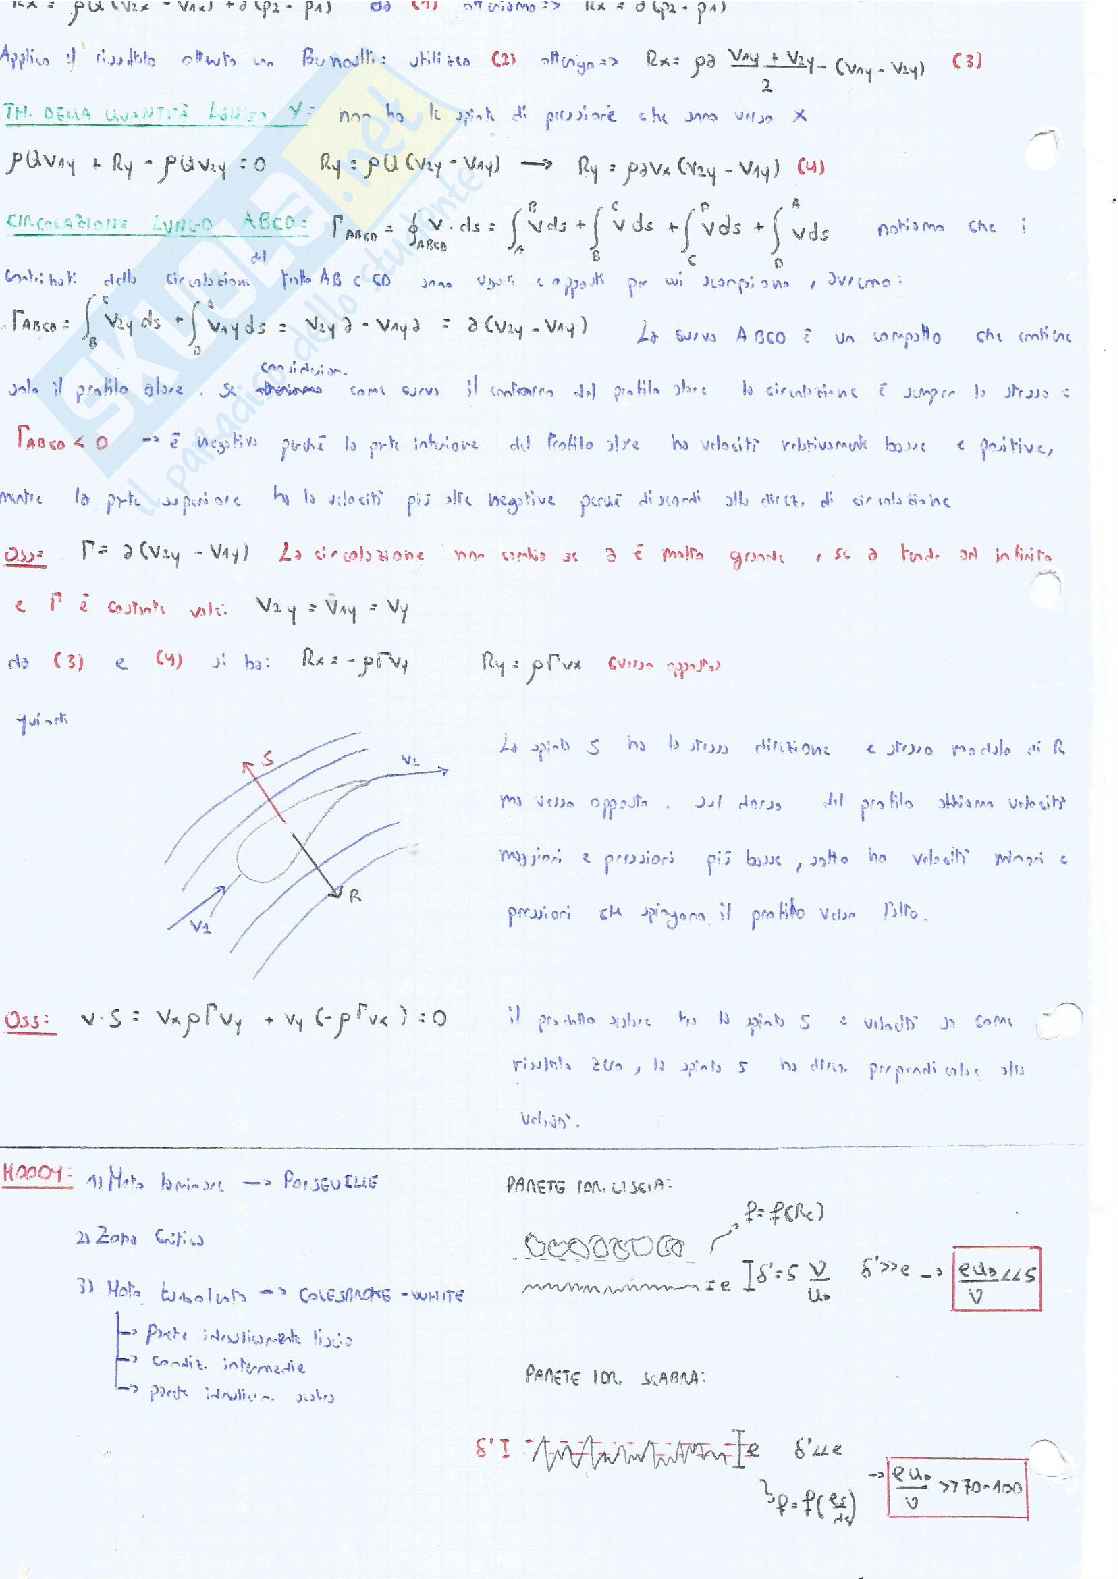 Rx = ρQ(v2x - v1x) + a(p2 - p1) da (1) otteniamo => Rx = a(p2 - p1)
Applico il risultato ottenuto con Bernoulli: utilizzo (2) ottengo => Rx = ρa (v1y + v2y)/2 - (v1y - v2y) (3)
TH. DELLA QUANTITÀ LUNGO Y: non ho le spinte di pressione che sono verso x
ρQv1y + Ry - ρQv2y = 0 Ry = ρQ(v2y - v1y) → Ry = ρavx(v2y - v1y) (4)
CIRCOLAZIONE LUNGO ABCD: ΓABCD = ∮ABCD v · ds = ∫AB v ds + ∫BC v ds + ∫CD v ds + ∫DA v ds notiamo che i
contributi della circolazione del tratto AB e CD sono uguali e opposti per cui scompaiono, avremo:
ΓABCD = ∫BC v2y ds + ∫DA v1y ds = v2y a - v1y a = a(v2y - v1y) La curva ABCD è un compatto che contiene
solo il profilo alare. Se consideriam. come curva il contorno del profilo alare la circolazione è sempre la stessa e
ΓABCD < 0 → è negativa perché la parte inferiore del Profilo alare ha velocità relativamente basse e positive,
mentre la parte superiore ha la velocità più alte negative perché discordi alla direz. di circolazione
Oss: Γ = a(v2y - v1y) La circolazione non cambia se a è molto grande, se a tende ad infinito
e Γ è costante vale: v2y = v1y = vy
da (3) e (4) si ha: Rx = -ρΓvy Ry = ρΓvx (verso opposto)
quindi
S
v2
R
v1
La spinta S ha la stessa direzione e stesso modulo di R
ma verso opposto. Sul dorso del profilo abbiamo velocità
maggiori e pressioni più basse, sotto ho velocità minori e
pressioni che spingono il profilo verso l'alto.
Oss: v·S = vxρΓvy + vy(-ρΓvx) = 0
il prodotto scalare tra la spinta S e velocità da come
risultato zero, la spinta S ha direz. perpendicolare alla
velocità.
MOODY: 1) Moto laminare → POISEUILLE
2) Zona Critica
3) Moto turbolento → COLEBROOKE-WHITE
→ parete idraulicamente liscia
→ condiz. intermedie
→ parete idraulicam. scabra
PARETE IDR. LISCIA:
f = f(Re)
e δ' = 5 ν/u* δ' >> e → eu*/ν << 5
PARETE IDR. SCABRA:
δ' e δ' << e → eu*/ν >> 70-100